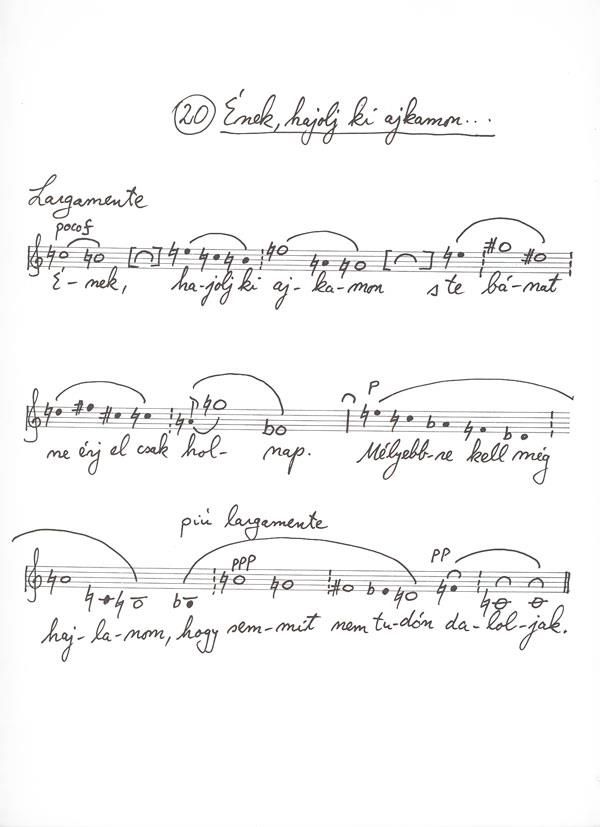 20 Ének, hajolj ki ajkamon...
Largamente
poco f
É-nek, ha-jolj ki aj-ka-mon s te bá-nat
p
ne érj el csak hol- nap. Mélyebb-re kell még
più largamente
ppp pp
haj-la-nom, hogy sem-mit nem tu-dón da-lol-jak.